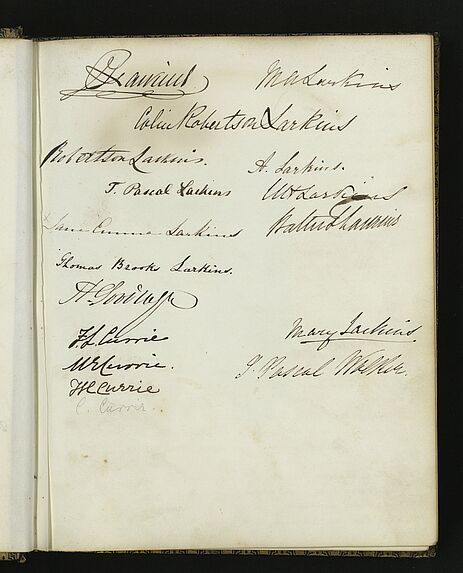 Larkins
M A Larkins
Colin Robertson Larkins
Robertson Larkins.
A. Larkins.
T. Pascal Larkins
W Larkins
Jane Emma Larkins
Walter Larkins
Thomas Brooks Larkins.
F L Currie
Mary Larkins.
M E Currie.
J. Pascal Walker.
F H Currie
C. Currie.